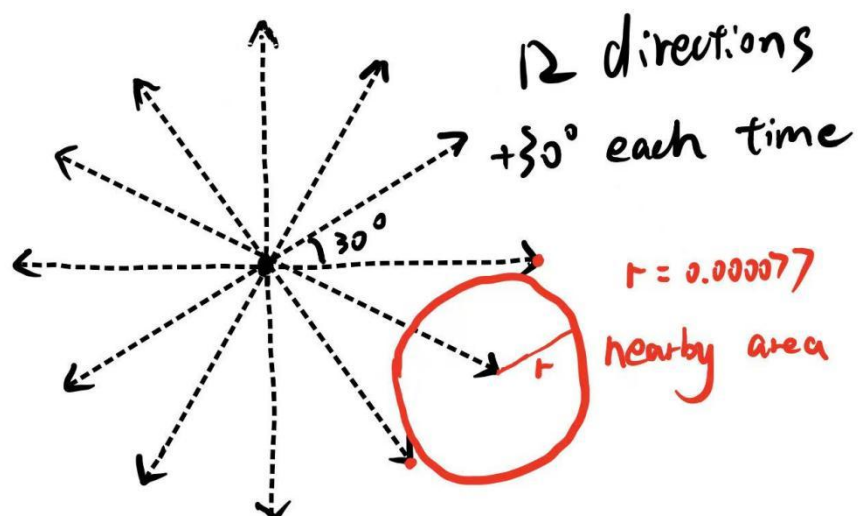 12 directions
+30° each time
30°
r = 0.000077
r nearby area